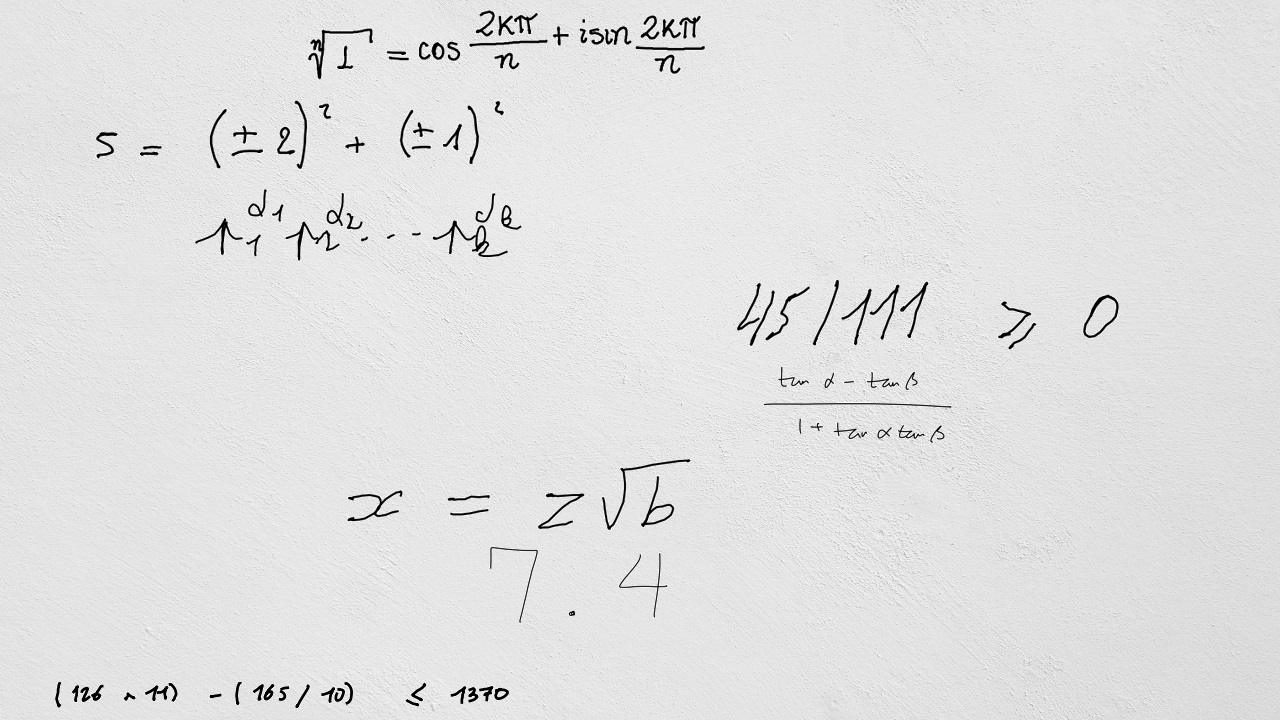 $\sqrt[n]{1} = \cos \frac{2k\pi}{n} + i \sin \frac{2k\pi}{n}$
$5 = (\pm 2)^2 + (\pm 1)^2$
$p_1^{\alpha_1} p_2^{\alpha_2} \cdots p_k^{\alpha_k}$
$45 / 111 \geq 0$
$\frac{\tan \alpha - \tan \beta}{1 + \tan \alpha \tan \beta}$
$x = z\sqrt{b}$
$7.4$
$(126 \times 11) - (165 / 10) \leq 1370$